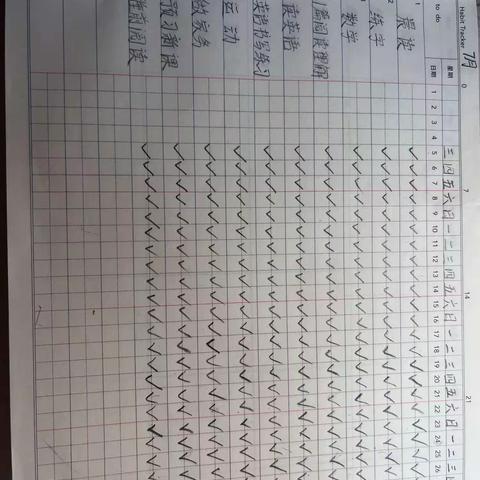 Habit Tracker 7月
0 7 14 21
to do 星期 三 四 五 六 日 一 二 三 四 五 六 日 一 二 三 四 五 六 日 一 二 三
日期 1 2 3 4 5 6 7 8 9 10 11 12 13 14 15 16 17 18 19 20 21 22 23 24 25 26
1 晨读
2 练字
数学
1篇阅读理解
读英语
英语书写练习
运动
做家务
预习新课
阅读